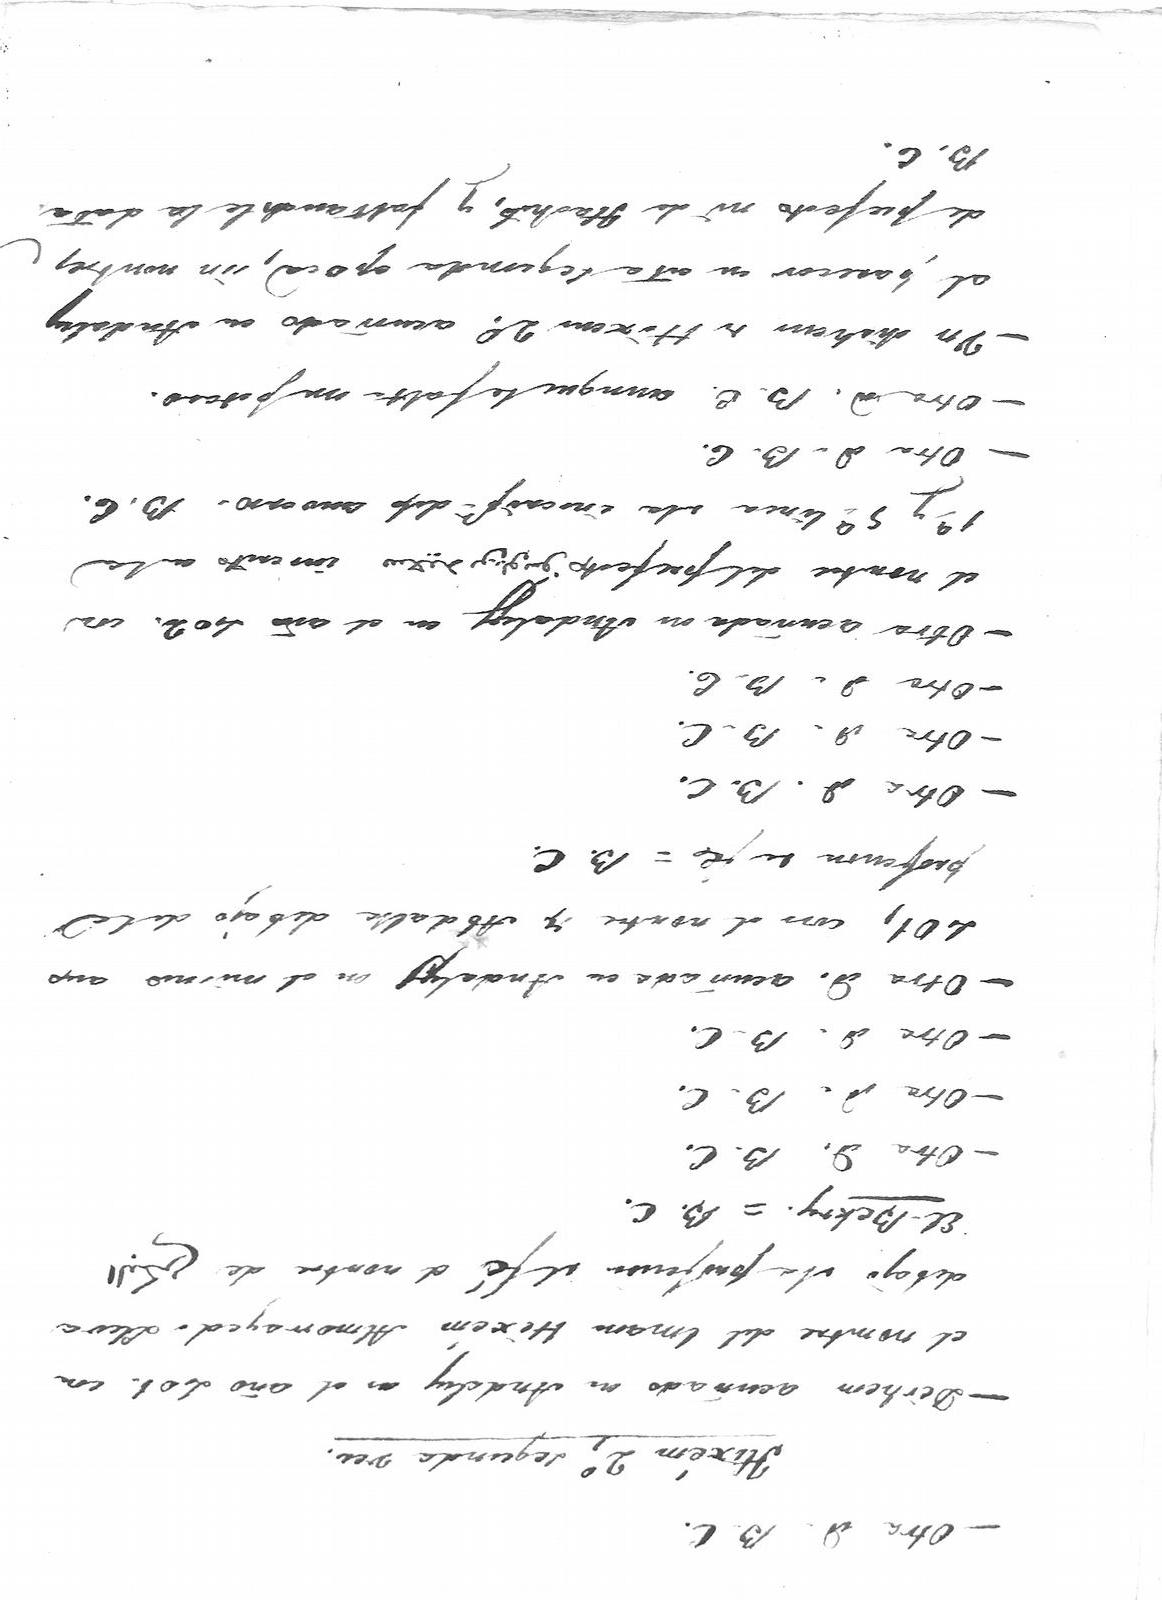 — Otra I. B. C.
Hixém 2º, segunda vez.
— Dirhem acuñado en Andalus en el año 401. con
el nombre del Imam Hixém Almowayed. Lleva
debajo de la profesion de fé el nombre de البكري
El-Bekry. = B. C.
— Otra I. B. C.
— Otra I. B. C.
— Otra I. B. C.
— Otra I. acuñada en Andalus en el mismo año
401, con el nombre de Abdalla debajo de la
profesion de fé = B. C.
— Otra I. B. C.
— Otra I. B. C.
— Otra I. B. C.
— Otra acuñada en Andalus en el año 402. con
el nombre del prefecto inscrito en la
1ª y 5ª linea de la inscrip. del anverso. B. C.
— Otra I. B. C.
— Otra I. B. C. aunque le falta un pedazo.
— Un dirhem de Hixem 2º. acuñado en Andalus
al parecer en esta segunda epoca, sin nombre,
de prefecto ni de Hachib, y faltandole la data.
B. C.